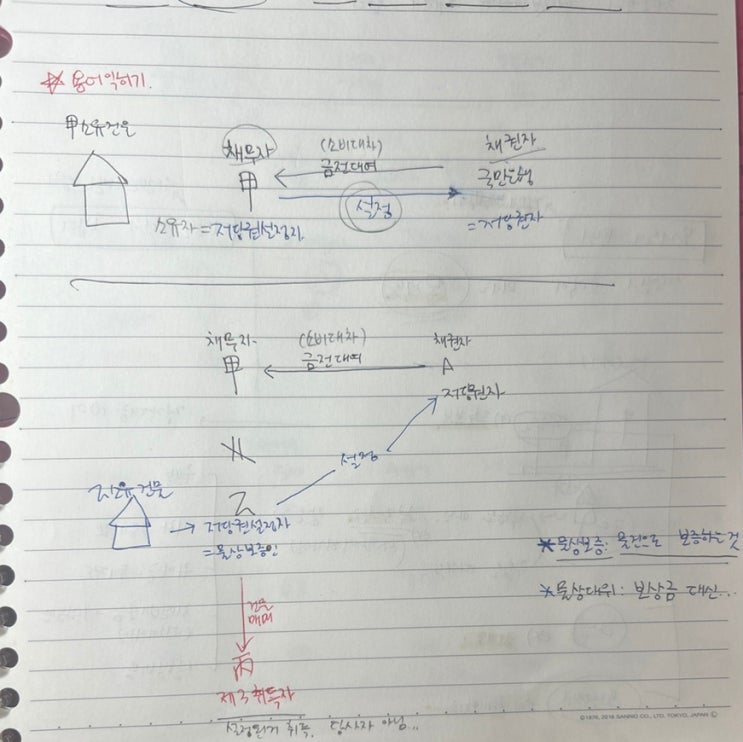 ☆ 용어익히기.
甲소유건물
채무자
(소비대차)
채권자
甲
금전대여
국민은행
설정
소유자 = 저당권설정자
= 저당권자
채무자
(소비대차)
채권자
甲
금전대여
A
저당권자
설정
乙소유건물
乙
→ 저당권설정자
= 물상보증인
*물상보증: 물건으로 보증하는것
*물상대위: 보상금 대신...
건물
매매
丙
제3취득자
설정된거 취득. 당사자 아님...
©1976, 2016 SANNO CO., LTD. TOKYO, JAPAN